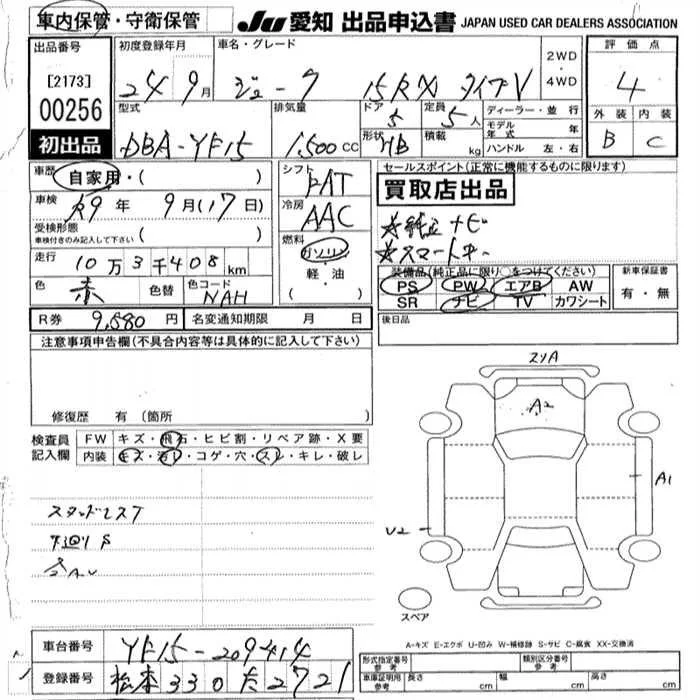 車内保管・守衛保管
JU 愛知 出品申込書 JAPAN USED CAR DEALERS ASSOCIATION
出品番号
[2173]
00256
初出品
初度登録年月
24 9月
車名・グレード
ジューク 15RX タイプV
2WD・4WD
評価点
4
外装 内装
B C
型式
DBA-YF15
排気量
1,500 CC
ドア 5
定員 5人
形状 HB
積載 kg
ディーラー・並行
モデル年式 年
ハンドル 左・右
車歴 自家用・( )
車検 R9年 9月(17日)
受検形態
車検付きのみ記入して下さい ( )
走行 10万3千408km
色 赤 色替 色コード NAH
シフト FAT
冷房 AAC
燃料
ガソリン
軽・油
( )
セールスポイント(正常に機能するものに限ります)
買取店出品
※純正ナビ
※スマートキー
装備品(純正品に限り○をつけてください)
PS PW エアB AW
SR ナビ TV カワシート
新車保証書
有・無
R券 9,580円 名変通知期限 月 日
後日品
注意事項申告欄(不具合内容等は具体的に記入して下さい)
修復歴 有(箇所
検査員記入欄
FW キズ・飛石・ヒビ割・リペア跡・X要
内装 キズ・汚レ・コゲ・穴・スレ・キレ・破レ
スタッドレスT
下廻りS
スリA
A2
A1
U2
スペア
A-キズ E-エクボ U-凹み W-補修跡 S-サビ C-腐食 XX-交換済
車台番号 YF15-209414
登録番号 松本330た2721
形式指定番号 参考
類別区分番号 参考
車庫証明用 参考 長さ cm 幅 cm 高さ cm